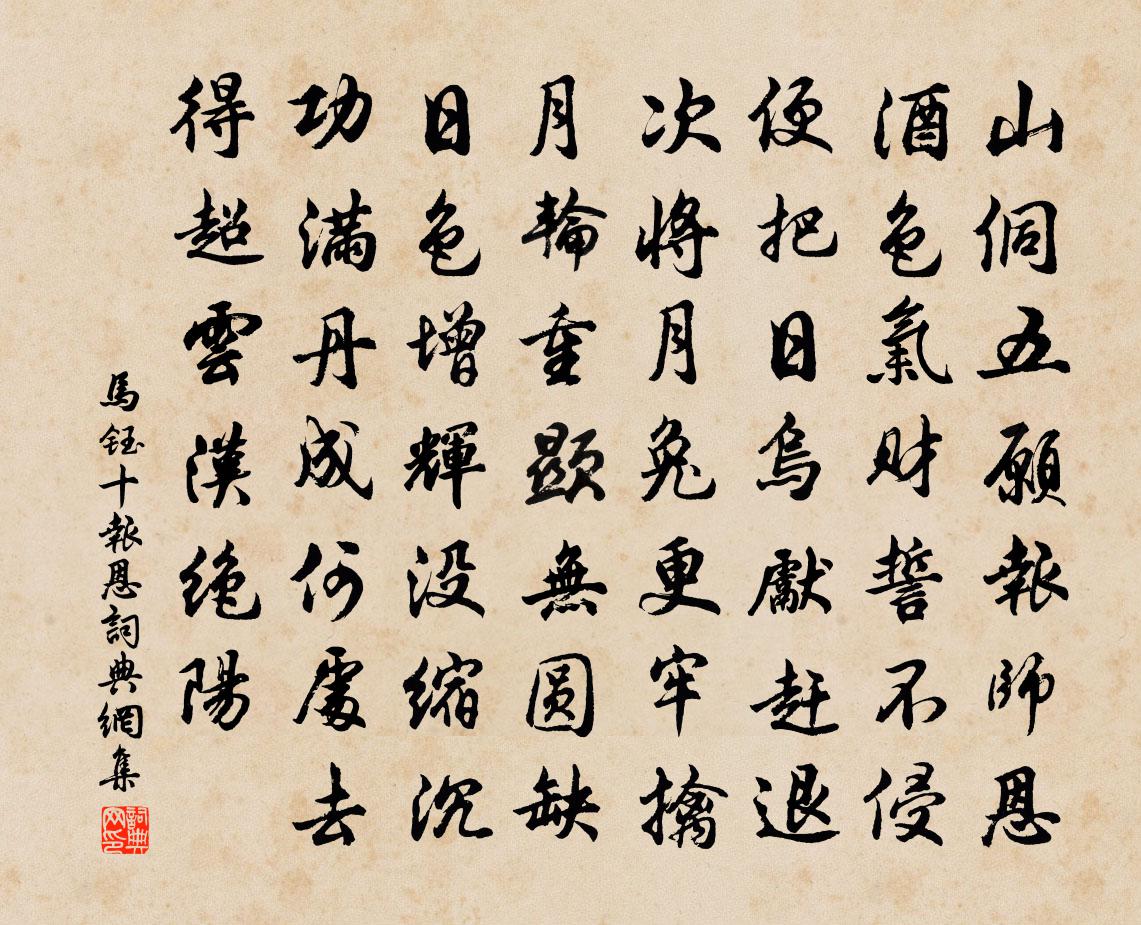 山侗五願報師恩
酒色氣財誓不侵
便把日烏獻赶退
次將月兔更牢擒
月輪重顯無圆缺
日色增輝没縮沉
功滿丹成何處去
得超雲漢绝陽
馬鈺十報恩詞典網集
詞典网印